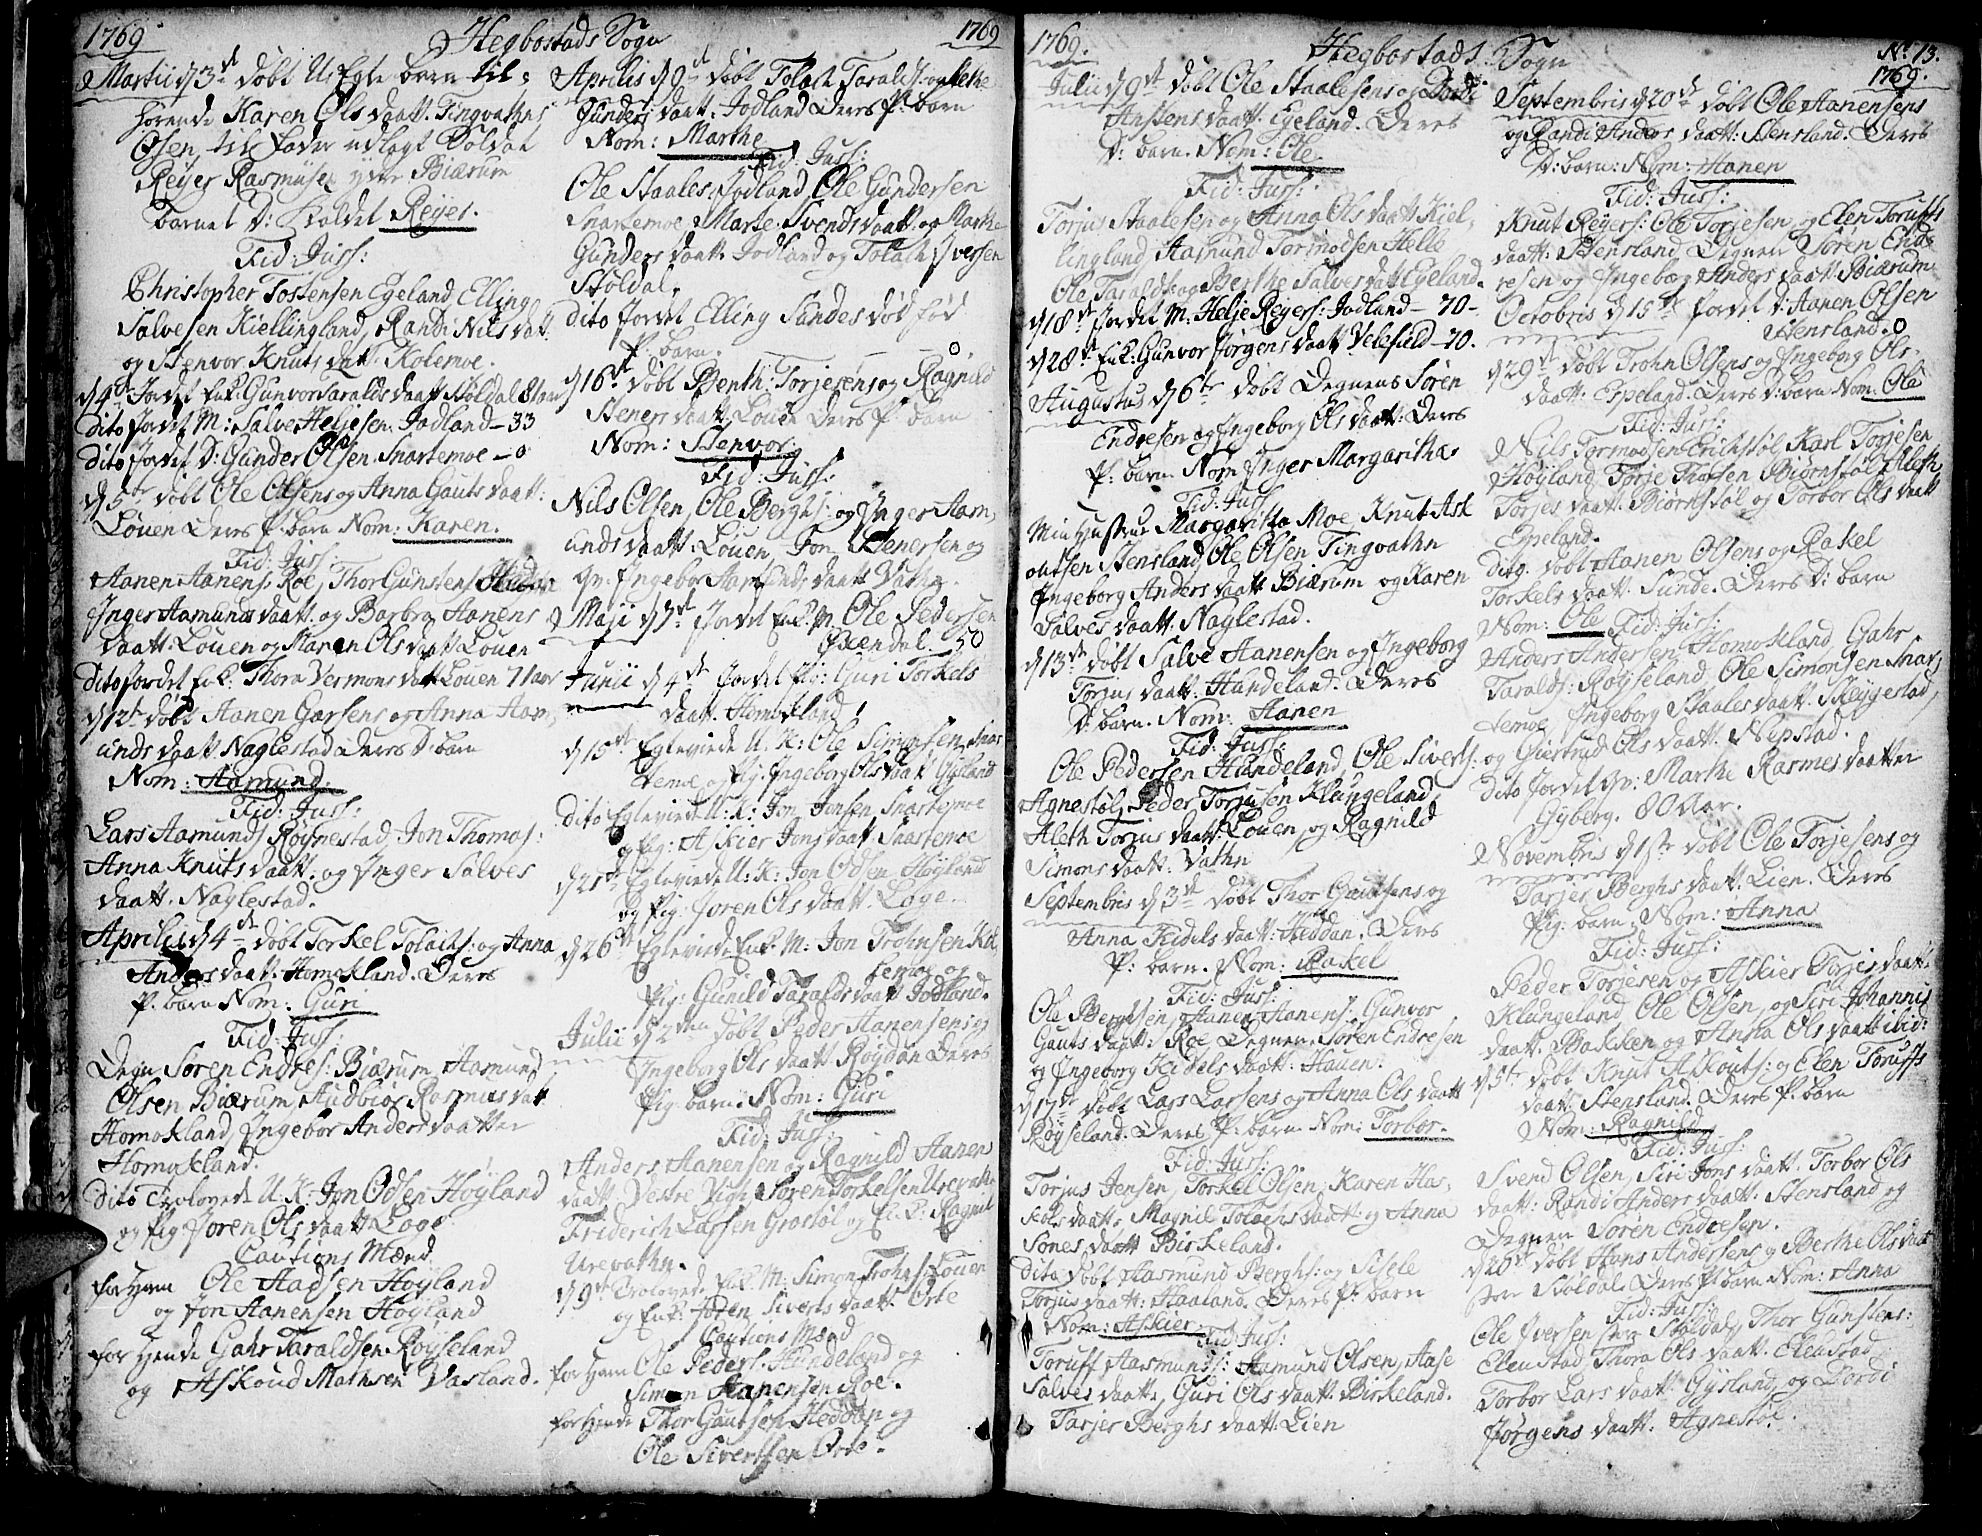 1769 Hegbostads Sogn 1769
Martii d 3de døbt U: Egte barn til,
hørende Karen Ols daatt. Tingvathns
Olsen, til fader udlagt Soldat
Reyer Rasmusen ytre Biærum
barnet D: kaldet Reyer.
Fid: Juss:
Christopher Tostensen Egeland Elling
Salvesen Kiellingland, Randi Nils datt
og Stenvor Knuts datt. Kolemoe.
d 4de Jordet Enk: Gunvor Taralds daatt. Støldal 81 aar
Dito Jordet M: Salve Heljesen Jodland – 33
Dito Jordet D: Gunder Olsen Snartemoe – 0
d 5te døbt Ole Olsens og Anna Gauts daatt:
Louen Deres P: barn Nom: Karen.
Fid: Juss:
Aanen Aanens: Roe, Thor Gunstens:
Inger Aamunds daatt. og Barbro Aanens
daatt: Louen og Maren Ols daatt Louen
Dito Jordet Enk: Thora Vermons datt Louen 71 aar
d 12te døbt Aanen Garsens og Anna Aam,
unds daatt Naglestad Deres D: barn
Nom: Aamund.
Fid: Juss:
Lars Aamunds: Røynestad, Jon Thomas:
Anna Knuts daatt. og Inger Salves
daatt. Naglestad.
Aprilis d 4de døbt Torkel Tolaks: og Anna
Anders daatt. Homokland. Deres
P: barn Nom: Guri
Fid: Juss:
Degn Søren Endres: Biærum, Aamund
Olsen Biærum, Audbior Rasmus datt
Homokland, Ingebor Anders daatter
Homokland.
Dito Trolovede U. K: Jon Odsen Høyland
og Pig: Joren Ols daatt Loge
Cautions Mænd
for ham Ole Aadsen Høyland
og Jon Aanensen Høyland
for hende Gahr Taraldsen Røyseland
og Askoud Mathsen Vasland.
Aprilis d 9de døbt Tolach Taralds: og Marthe
Gunders daatt. Jodland Deres P: barn
Nom: Marthe
Fid: Juss:
Ole Staales: Jodland, Ole Gundersen
Snartemoe Marte Svends daatt. og Marthe
Gunders daatt. Jodland og Tolach Iversen
Støldal.
Dito Jordet Elling Sundes død fød
P: barn. – – – 0
d 16de døbt Benth: Torjesens og Ragnild
Steners daatt. Louen Deres P: barn
Nom: Stenvor.
Fid: Juss:
Nils Olsen, Ole Berghs: og Inger Aam,
unds daatt: Louen, Jon Stenersen og
Qv: Ingebor Aamunds daatt Vathn.
Maji d 7de Jordet Enk: M. Ole Pedersen
50
Junii d 4de Jordet Pig: Guri Torkels
daatt. Homokland
d 15de Egteviede U. K: Ole Simonsen Snar
temoe og Pig: Ingeborg Ols daatt Gysland
Dito Egteviede U: K: Jon Jonsen Snartemoe
og Pig: Askier Jons daatt Snartemoe
d 21de Egteviede U: K: Jon Odsen Høyland
og Pig: Joren Ols daatt. Loge
d 26de Egteviede Enk. M: Jon Trohnsen Kol,
lemoe og
Pig: Gunild Taralds daatt Jodland.
Julii d 2den døbt Peder Aanensens og
Ingeborg Ols daatt Røydan Deres
Pig: barn: Nom: Guri
Fid: Juss:
Anders Aanensen og Ragnild Aanen
daatt. Vestre Vigh, Søren Torkelsen Urevathn
Friderich Larsen Grostøl og Enk: Ragnil
Urevathn.
d 9de Trolovede Enk. M: Simon Trohns: Louen
og Enk: Joren Siverts daatt. Orte
Cautions Mænd
for ham Ole Peders: Hundeland og
Simon Aanensen Roe.
for hende Thor Gautsen Heddan og
Ole Sivertsen Orte.
1769. Hegbostads Sogn No. 13.
1769.
Julii d 9de døbt Ole Staalesens og Dordi
Anstens daatt. Egeland. Deres
D: barn. Nom: Ole
Fid: Juss:
Torjus Staalesen og Anna Ols daatt Kiel,
lingland, Aamund Tormodsen Helle
Ole Taralds: og Berthe Salves datt Egeland.
d 18de Jordet M: Helje Reyers: Jodland – 70 –
d 28de Enk: Gunvor Jørgens daatt Velefield – 70.
Augustus d 6te døbt Degnens Søren
Endresen og Ingeborg Ols daatt: Deres
P: barn Nom Inger Margaritha
Fid: Juss:
Min Hustrue Margaritha Moe, Knut Ask
outsen Stensland, Ole Olsen Tingvathn
Ingeborg Anders daatt Biærum og Karen
Salves daatt: Naglestad.
d 13de døbt Salve Aanensen og Ingeborg
Torjus daatt. Hundeland. Deres
D: barn. Nom: Aanen
Fid: Juss:
Ole Pedersen Hundeland, Ole Siverts:
Agnestøl, Peder Torjusen Klungeland,
Aleth Torjus daatt: Louen, og Ragnild
Simons daatt: Vathn
Septembris d 3de døbt Thor Gautsens og
Anna Kidels daatt: Heddan. Deres
P: barn. Nom: Rakel
Fid: Juss:
Ole Bergtsen, Aanen Aanens: Gunvor
Gauts daatt: Roe Degnen Søren Endresen
og Ingeborg Kidels daatt. Hauen.
d 17de døbt Lars Larsens og Anna Ols daatt
Røyseland. Deres P: barn Nom: Torbor.
Fid: Juss:
Torjus Jensen, Torkel Olsen, Karen Has,
kols daatt, Magnil Tolachs daatt: og Anna
Sønes daatt Birkeland.
Dito døbt Aasmund Berghs: og Sisele
Torjus daatt: Haaland. Deres P: barn
Nom: Askier.
Fid: Juss:
Toruff Aasmunds: Aamund Olsen, Aase
Salves daatt, Guri Ols daatt. Birkeland.
Tarjer Berghs daatt: Lien
Septembris d 20de døbt Ole Aanensens
og Randi Anders daatt: Stensland. Deres
D: barn: Nom: Aanen
Fid: Juss:
Knut Reyers: Ole Torjesen, og Elen Toruffs
daatt: Stensland, Degnen Søren End,
resen og Ingeborg Anders daatt: Biærum
Octobris d 15de Jordet D: Aanen Olsen
Stensland. 0
d 29de døbt Trohn Olsens og Ingeborg Ols
daatt. Epeland. Deres D: barn Nom: Ole
Fid: Juss:
Nils Tormodsen Erikstøl, Karl Torjesen
Høyland, Torje Thorsen Biørnstøl, Aleth
Torjes daatt: Biørnstøl og Torbor Ols daatt
Epeland.
Dito. døbt Aanen Olsens og Rakel
Torkels daatt: Sunde. Deres D: barn
Nom: Ole Fid: Juss:
Anders Andersen Homokland, Gahr
Taralds: Røyseland, Ole Simonsen Snar,
temoe, Ingeborg Staales daatt. Skeggestad,
og Giertrud Ols daatt. Nepstad.
Dito Jordet Qv: Marthe Rasmes daatter
Gyberg. 80 Aar.
Novembris d 1ste døbt Ole Torjesens og
Tarjer Berghs daatt. Lien. Deres
Pig: barn. Nom: Anna
Fid: Juss:
Peder Torjesen og Askier Torjes daatt:
Klungeland Ole Olsen, og Siri Johannis
daatt. Bakken og Anna Ols daatt ibid:
d 5te døbt Knut Askouts: og Elen Toruffs
daatt. Stensland. Deres P: barn
Nom: Ragnild
Fid: Juss:
Svend Olsen, Siri Jons daatt. Torbor Ols
daatt: Randi Anders daatt. Stensland og
Degnen Søren Endresen.
d 26de døbt Hans Andersens og Berthe Ols datt
Støldal. Deres P: barn Nom: Anna
Fid: Juss:
Ole Iversen Støldal, Thor Gunstens:
Elenstad, Thora Ols daatt. Elenstad
Torbor Lars daatt. Gysland, og Dordi
Jørgens daatt. Agnestøl.